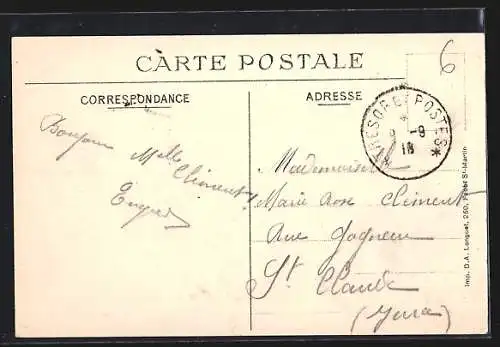 CÀRTE POSTALE
CORRESPONDANCE
ADRESSE
6
TRESOR ET POSTES
-9
18
Bonjour
Melle
Climent
Mademoiselle
Marie Rose Climent
Rue
St Claude
(Jura)
Imp. D.A. Longuet, 250, Faubg St-Martin